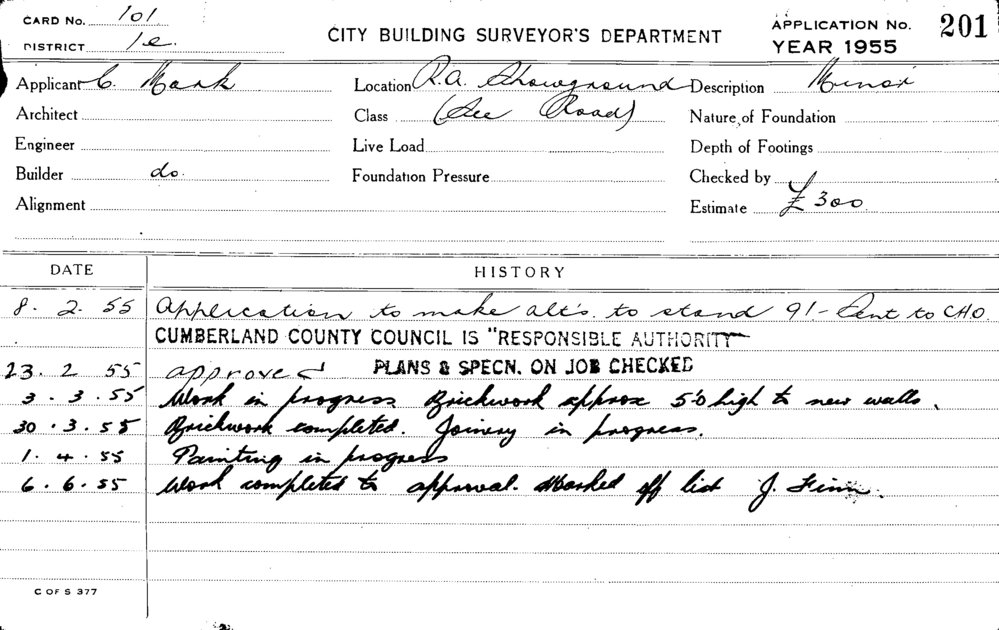 CARD No. 101
DISTRICT 1e.
CITY BUILDING SURVEYOR'S DEPARTMENT
APPLICATION No. 201
YEAR 1955
Applicant C. Mark Location R.A. Showground Description Minor
Architect Class (See Road) Nature of Foundation
Engineer Live Load Depth of Footings
Builder do. Foundation Pressure Checked by
Alignment Estimate £300.
DATE HISTORY
8. 2. 55 Application to make alt's. to stand 91 - Sent to CHO
CUMBERLAND COUNTY COUNCIL IS "RESPONSIBLE AUTHORITY
23. 2 55 approved PLANS & SPECN. ON JOB CHECKED
3. 3. 55 Work in progress. Brickwork approx 5'0 high to new walls.
30. 3. 55 Brickwork completed. Joinery in progress.
1. 4. 55 Painting in progress
6. 6. 55 Work completed to approval. Marked off list J. Finn.
C OF S 377